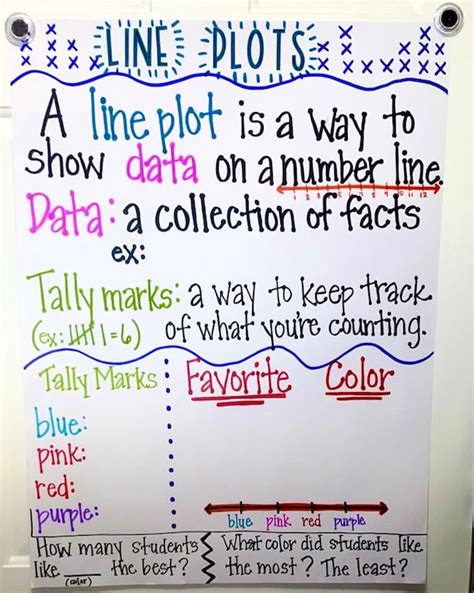 LINE PLOTS
A line plot is a way to
show data on a number line.
1 2 3 4 5 6 7 8 9 10 11 12
Data: a collection of facts
ex:
Tally marks: a way to keep track
(ex: 卌 1=6) of what you're counting.
Tally Marks
Favorite Color
blue:
pink:
red:
purple:
blue pink red purple
How many students
like ___ the best?
(color)
What color did students like
the most? The least?